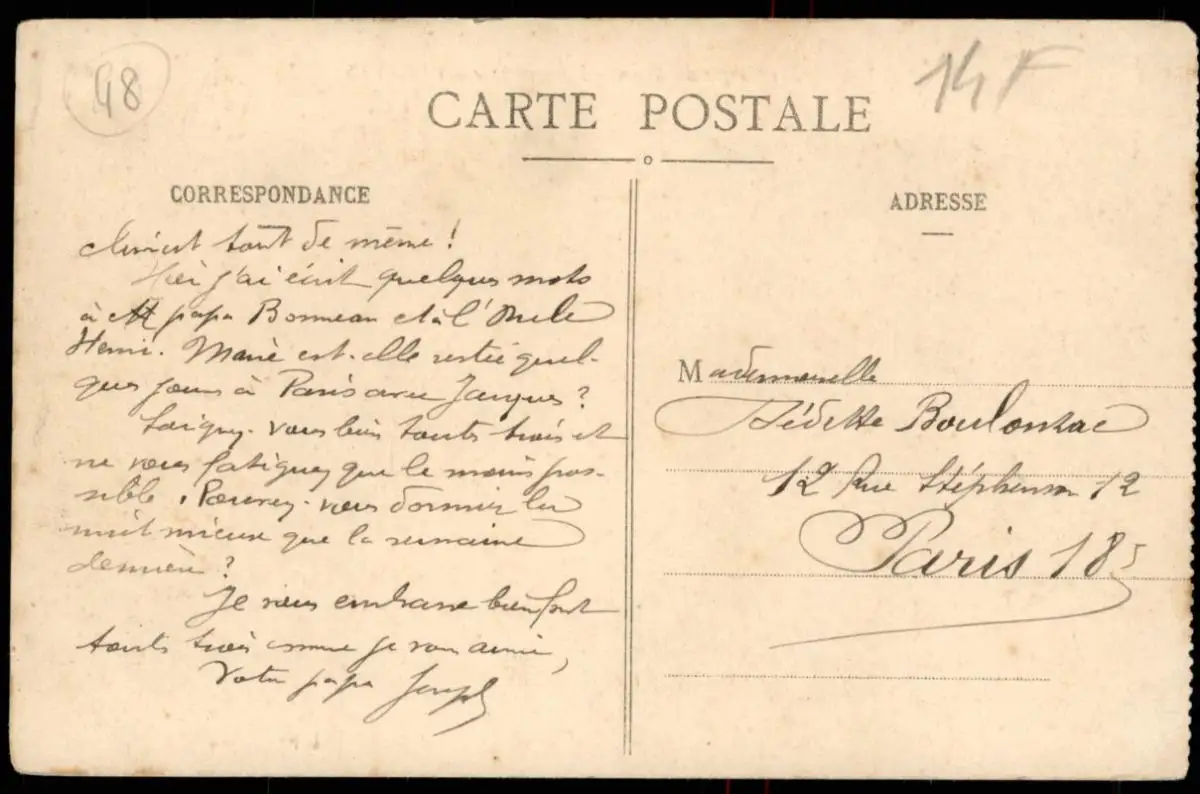 48
14 F
CARTE POSTALE
CORRESPONDANCE
tout de même !
Hier j'ai écrit quelques mots
à papa Bonneau et à l'Oncle
Henri. Marie est-elle restée quel-
ques jours à Paris avec Jacques ?
Soignez-vous bien toutes trois et
ne vous fatiguez que le moins pos-
sible. Pouvez-vous dormir la
nuit mieux que la semaine
dernière ?
Je vous embrasse bien fort
toutes trois comme je vous aime,
Votre papa Joseph
ADRESSE
Mademoiselle
Dédette Boulonzac
12 Rue Stéphenson 12
Paris 18